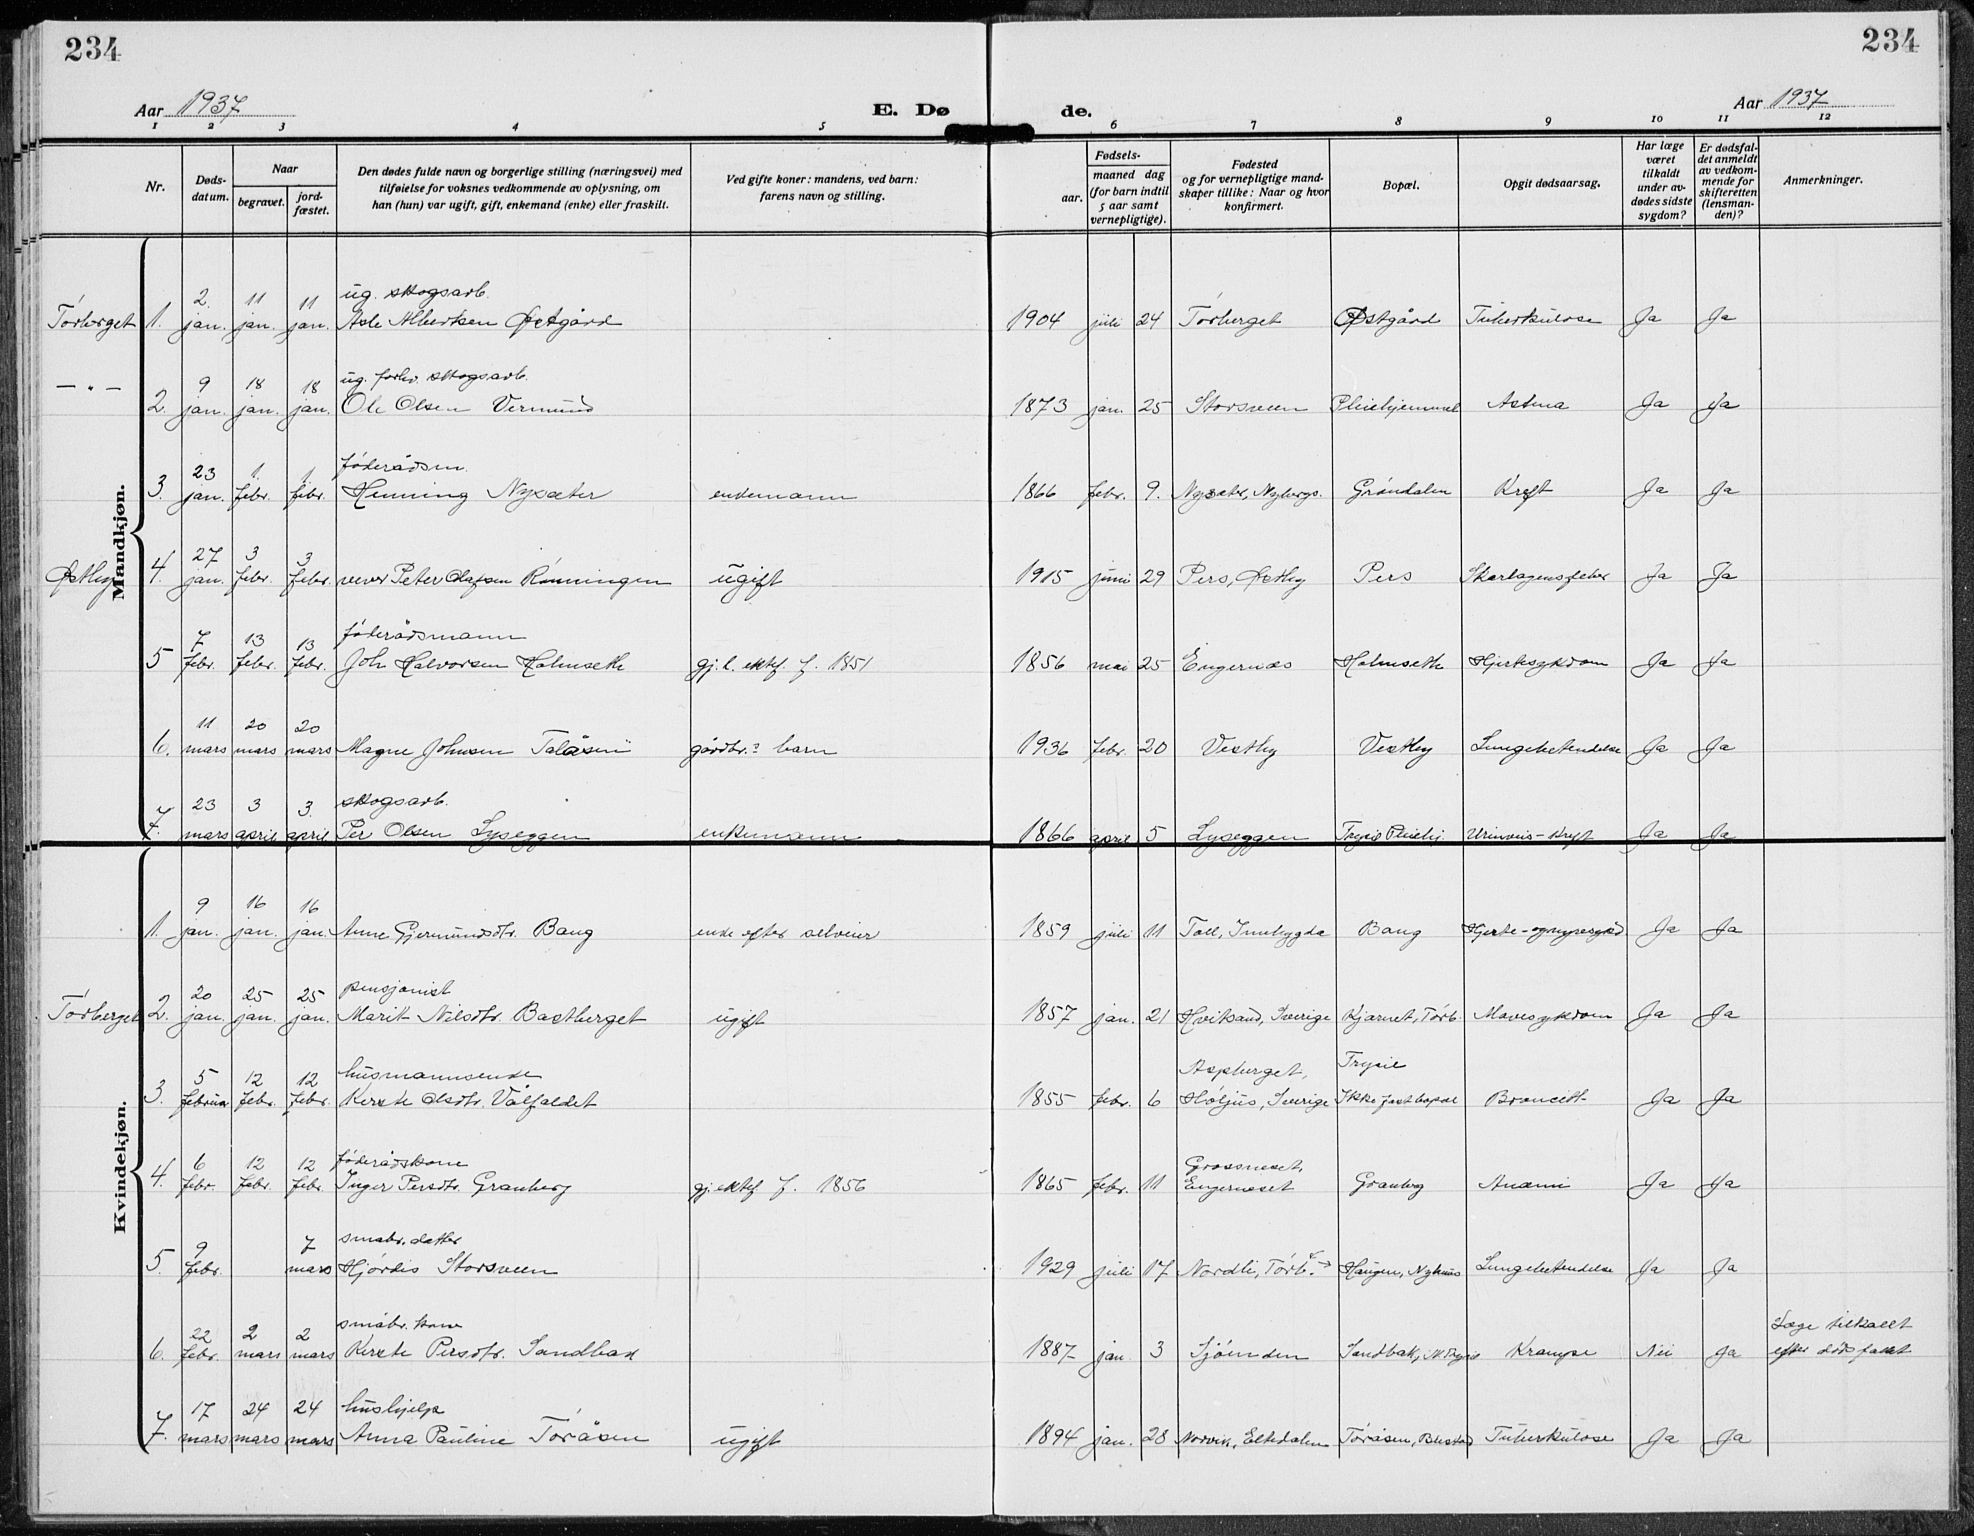 234
234
Aar 1937
E. Dø
de.
Aar 1937
1 2 3 4 5 6 7 8 9 10 11 12
Nr.
Døds-
datum.
Naar
begravet.
jord-
fæstet.
Den dødes fulde navn og borgerlige stilling (næringsvei) med
tilføielse for voksnes vedkommende av oplysning, om
han (hun) var ugift, gift, enkemand (enke) eller fraskilt.
Ved gifte koner: mandens, ved barn:
farens navn og stilling.
Fødsels-
aar.
maaned dag
(for barn indtil
5 aar samt
vernepligtige).
Fødested
og for vernepligtige mand-
skaper tillike: Naar og hvor
konfirmert.
Bopæl.
Opgit dødsaarsag.
Har læge
været
tilkaldt
under av-
dødes sidste
sygdom?
Er dødsfal-
det anmeldt
av vedkom-
mende for
skifteretten
(lensman-
den)?
Anmerkninger.
Mandkjøn.
2. 11 11 ug. skogsarb.
Tørberget 1. jan. jan. jan. Asle Albertsen Østgård 1904 juli 24 Tørberget Østgård Tuberkulose Ja Ja
— " — 9 18 18 ug. forhv. skogsarb.
2. jan. jan. jan. Ole Olsen Vermund 1873 jan. 25 Storsveen Pleiehjemmet Astma Ja Ja
23 1. 1. føderådsm.
3. jan. febr. febr. Henning Nysæter enkemann 1866 febr. 9. Nysæter, Nybergs. Grøndalen Kreft Ja Ja
27 3 3
Østby 4. jan. febr. febr. vever Peter Olafsen Rønningen ugift 1915 juni 29 Pers, Østby Pers Skarlagensfeber Ja Ja
7 13 13 føderådsmann
5 febr. febr. febr. Joh Halvorsen Holmseth gj. l. ektef. f. 1851 1856 mai 25 Engernes Holmseth Hjertesykdom Ja Ja
11 20 20
6. mars mars mars Magne Johnsen Talåsen gårdbr.s barn 1936 febr. 20 Vestby Vestby Lungebetendelse Ja Ja
23 3 3. skogsarb.
7. mars april april Per Olsen Lyseggen enkemann 1866 april 5 Lyseggen Trysil Pleiehj. Urinveis-kreft Ja Ja
Kvindekjøn.
9 16 16
1. jan. jan. jan. Anne Gjermundsdtr. Bang enke efter selveier 1859 juli 11 Tall, Innbygda Bang Hjerte- og nyresykd. Ja Ja
20 25 25 pensjonist
Tørberget 2. jan. jan. jan. Marit Nilsdtr. Bastberget ugift 1857 jan. 21 Hvitsand, Sverige Kjærnet, Tørb. Mavesykdom Ja Ja
5 12 12 husmannsenke Aspberget, Trysil
3. februar febr. febr. Kerste Olsdtr. Vålfaldet 1855 febr. 6 Höljus, Sverige Ikke fast bopæl Broncitt Ja Ja
6 12 12 føderådskone Grøssneset,
4. febr. febr. febr. Inger Persdtr. Granberg gj. ektef. f. 1856 1865 febr. 11 Engerneset Granberg Anæmi Ja Ja
9 7 småbr. datter
5. febr. mars Hjørdis Storsveen 1929 juli 17 Nordli, Tørb. Haugen, Nyhus Lungebetendelse Ja Ja
22 2 2 småbr. kone Læge tilkallt
6. febr. mars mars Kerste Persdtr. Sandbak 1887 jan. 3 Sjöenden Sandbak, Krampe Nei Ja efter dødsfallet
17 24 24 hushjelp
7. mars mars mars Anna Pauline Tøråsen ugift 1894 jan. 28 Norvik, Eltdalen Tøråsen, Tuberkulose Ja Ja